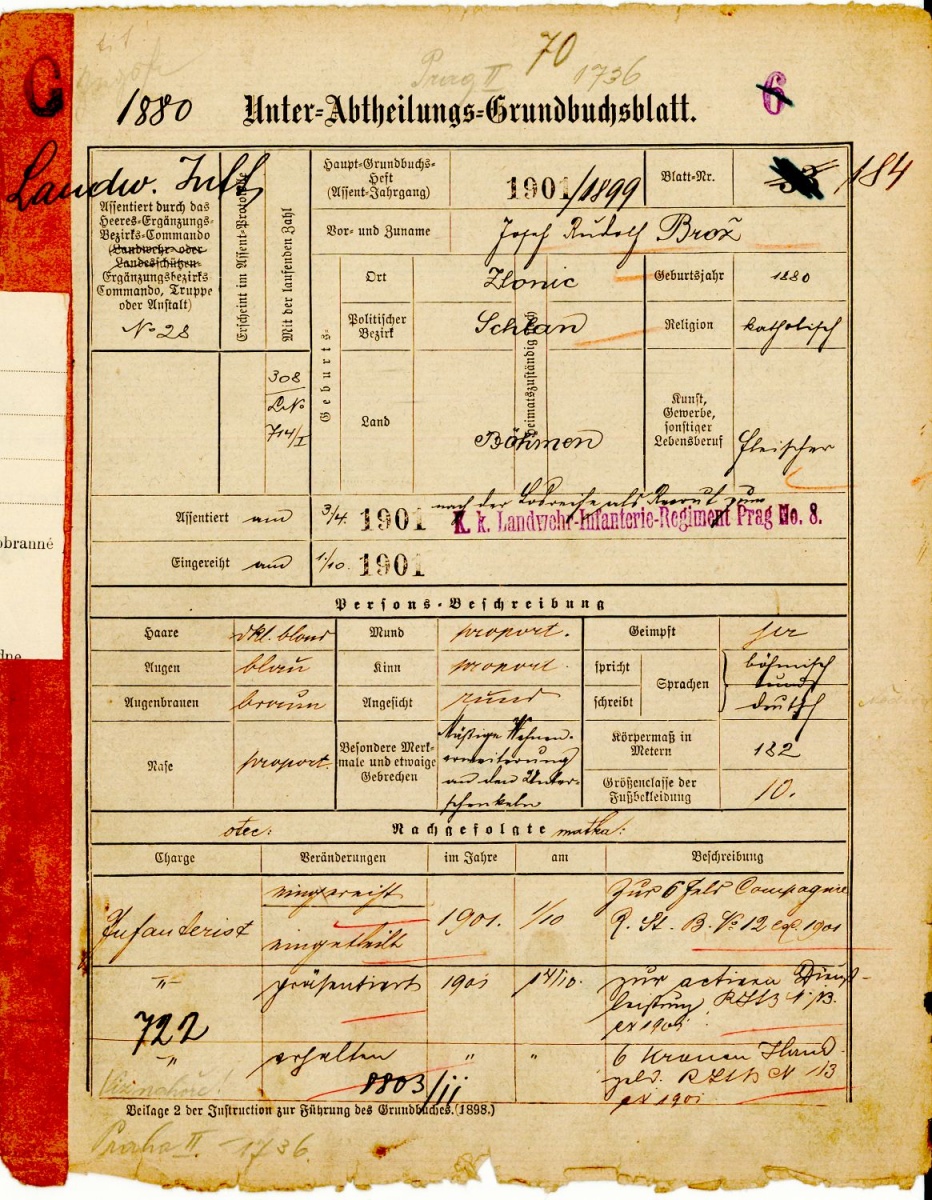 70
Prag II 1736
C
1880 Unter-Abtheilungs-Grundbuchsblatt. 6
Landw. Inft
Assentiert durch das
Heeres-Ergänzungs-
Bezirks-Commando
(Landwehr- oder
Landesschützen-
Ergänzungsbezirks
Commando, Truppe
oder Anstalt)
No 28
Erscheint im Assent-Protokolle
Mit der laufenden Zahl
308
714/I
Haupt-Grundbuchs-
Heft
(Assent-Jahrgang)
1901/1899
Blatt-Nr. 184
Vor- und Zuname Josef Rudolf Brož
Geburts-
Heimatszuständig
Ort Zlonic
Geburtsjahr 1880
Politischer
Bezirk
Schlan
Religion katholisch
Land Böhmen
Kunst,
Gewerbe,
sonstiger
Lebensberuf
fleischer
Assentiert am 3/4. 1901 nach der Losreihe als Recrut zum
K. k. Landwehr-Infanterie-Regiment Prag No. 8.
Eingereiht am 1/10. 1901
Persons-Beschreibung
Haare dkl. blond Mund proport. Geimpft ja
Augen blau Kinn proport.
spricht
schreibt
Sprachen
böhmisch
und
deutsch
Augenbrauen braun Angesicht rund
Nase proport.
Besondere Merk-
male und etwaige
Gebrechen
Mäßige Venen-
erweiterung
an den Unter-
schenkeln
Körpermaß in
Metern
182
Größenclasse der
Fußbekleidung
10.
otec: Nachgefolgte matka:
Charge Veränderungen im Jahre am Beschreibung
Infanterist
eingereiht
eingetheilt
1901. 1/10
zur 6 Feld Compagnie
R. St. B. No 12 ex 1901
" präsentiert 1901 14/10.
zur activen Dienst-
leistung
ex 1901
722
" erhalten " "
6 Kronen Hand-
geld.
ex 1901
8803/II
Beilage 2 der Instruction zur Führung des Grundbuches. (1898.)
Praha II. - 1736.
obranné
dne